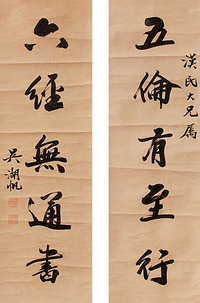 五倫有至行
漢民大兄屬
六經無通書
吳湖帆